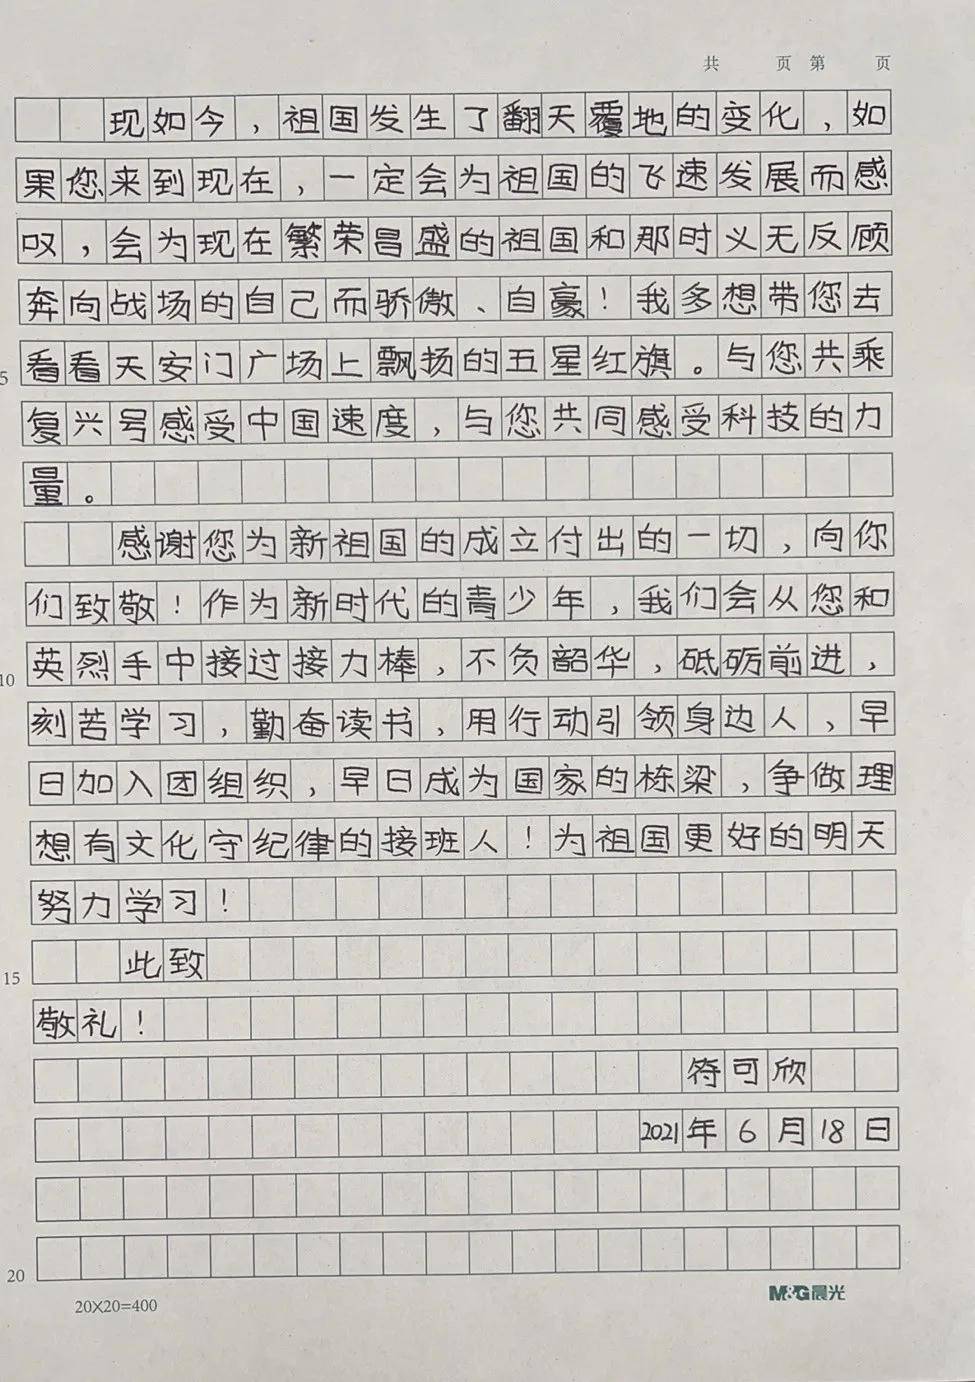 共 页 第 页
现如今，祖国发生了翻天覆地的变化，如
果您来到现在，一定会为祖国的飞速发展而感
叹，会为现在繁荣昌盛的祖国和那时义无反顾
奔向战场的自己而骄傲、自豪！我多想带您去
5 看看天安门广场上飘扬的五星红旗。与您共乘
复兴号感受中国速度，与您共同感受科技的力
量。
感谢您为新祖国的成立付出的一切，向你
们致敬！作为新时代的青少年，我们会从您和
10 英烈手中接过接力棒，不负韶华，砥砺前进，
刻苦学习，勤奋读书，用行动引领身边人，早
日加入团组织，早日成为国家的栋梁，争做理
想有文化守纪律的接班人！为祖国更好的明天
努力学习！
15 此致
敬礼！
符可欣
2021年6月18日
20
20×20=400 M&G晨光